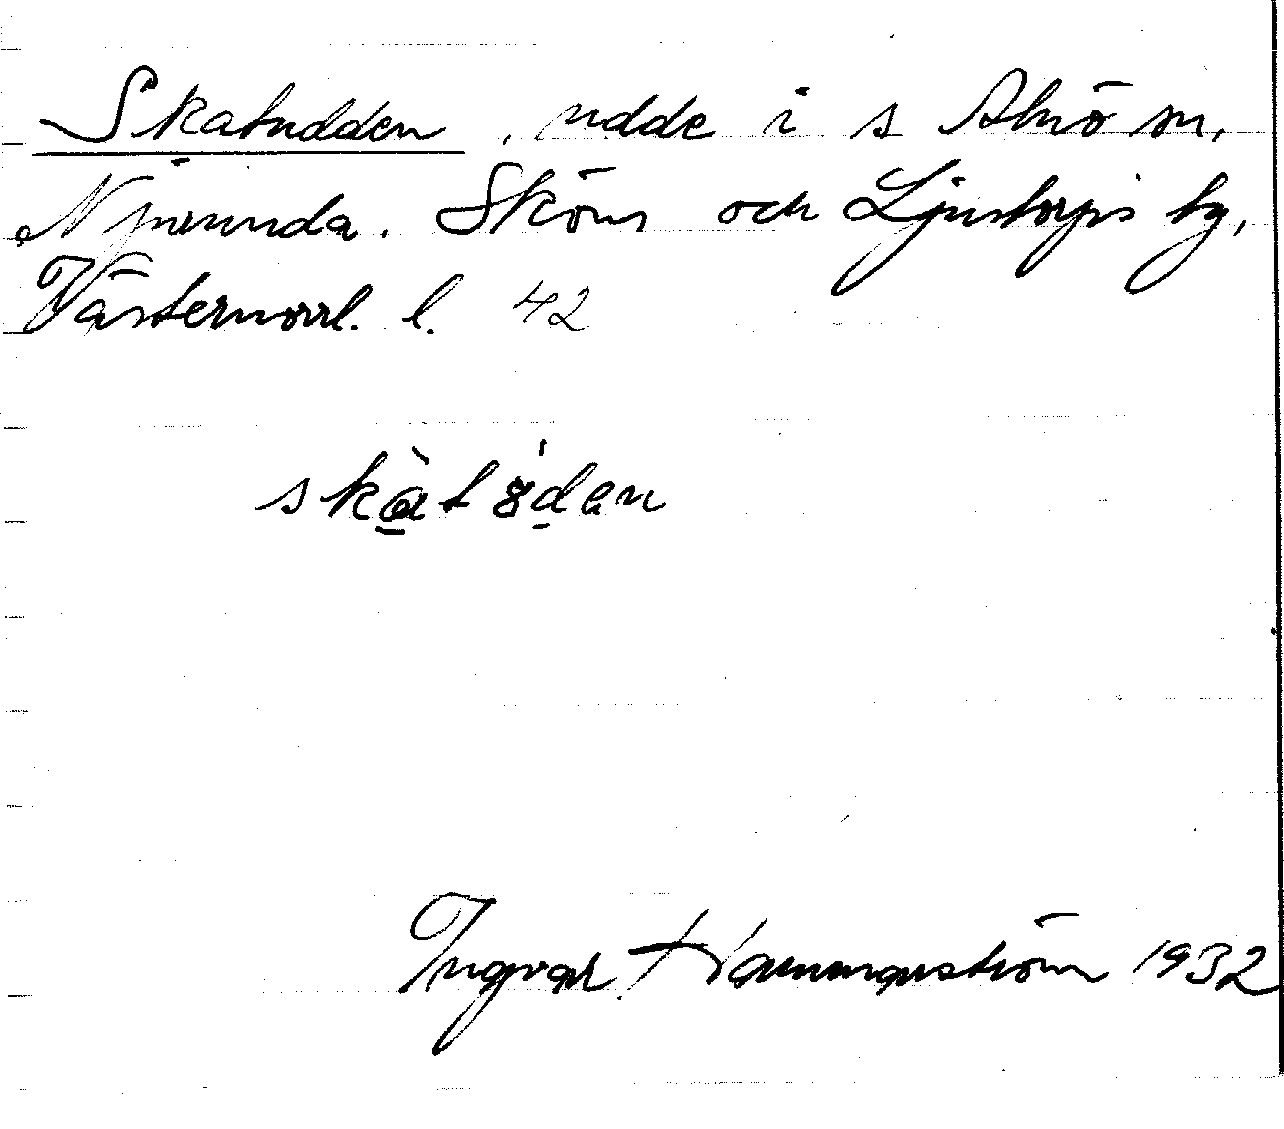 Skatudden, udde i s Alnö sn,
Njurunda, Sköns och Ljustorps tg,
Västernorrl. l. 42
skàtödən
Ingvar Hammarström 1932